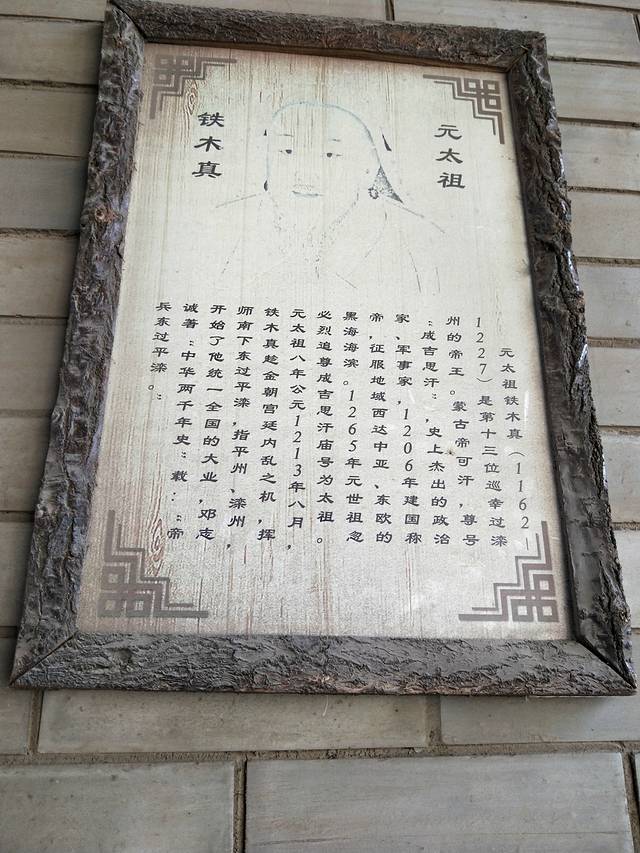 元太祖
铁木真
元太祖铁木真（1162—
1227）是第十三位巡幸过滦
州的帝王。蒙古帝可汗，尊号
“成吉思汗”，史上杰出的政治
家、军事家，1206年建国称
帝，征服地域西达中亚、东欧的
黑海海滨。1265年元世祖忽
必烈追尊成吉思汗庙号为太祖。
元太祖八年公元1213年八月，
铁木真趁金朝宫廷内乱之机，挥
师南下东过平滦，指平州、滦州，
开始了他统一全国的大业，邓志
诚著“中华两千年史”载：“帝
兵东过平滦。”